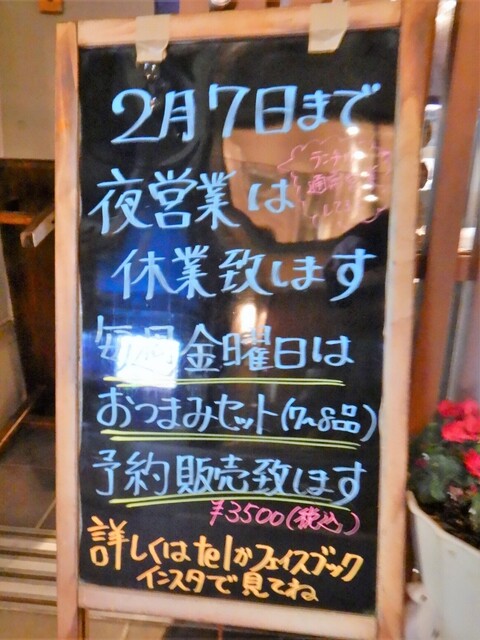 2月7日まで
夜営業は
ランチは
通常営業
休業致します
毎週金曜日は
おつまみセット(7〜8品)
予約販売致します
¥3500(税込)
詳しくはtelかフェイスブック
インスタで見てね